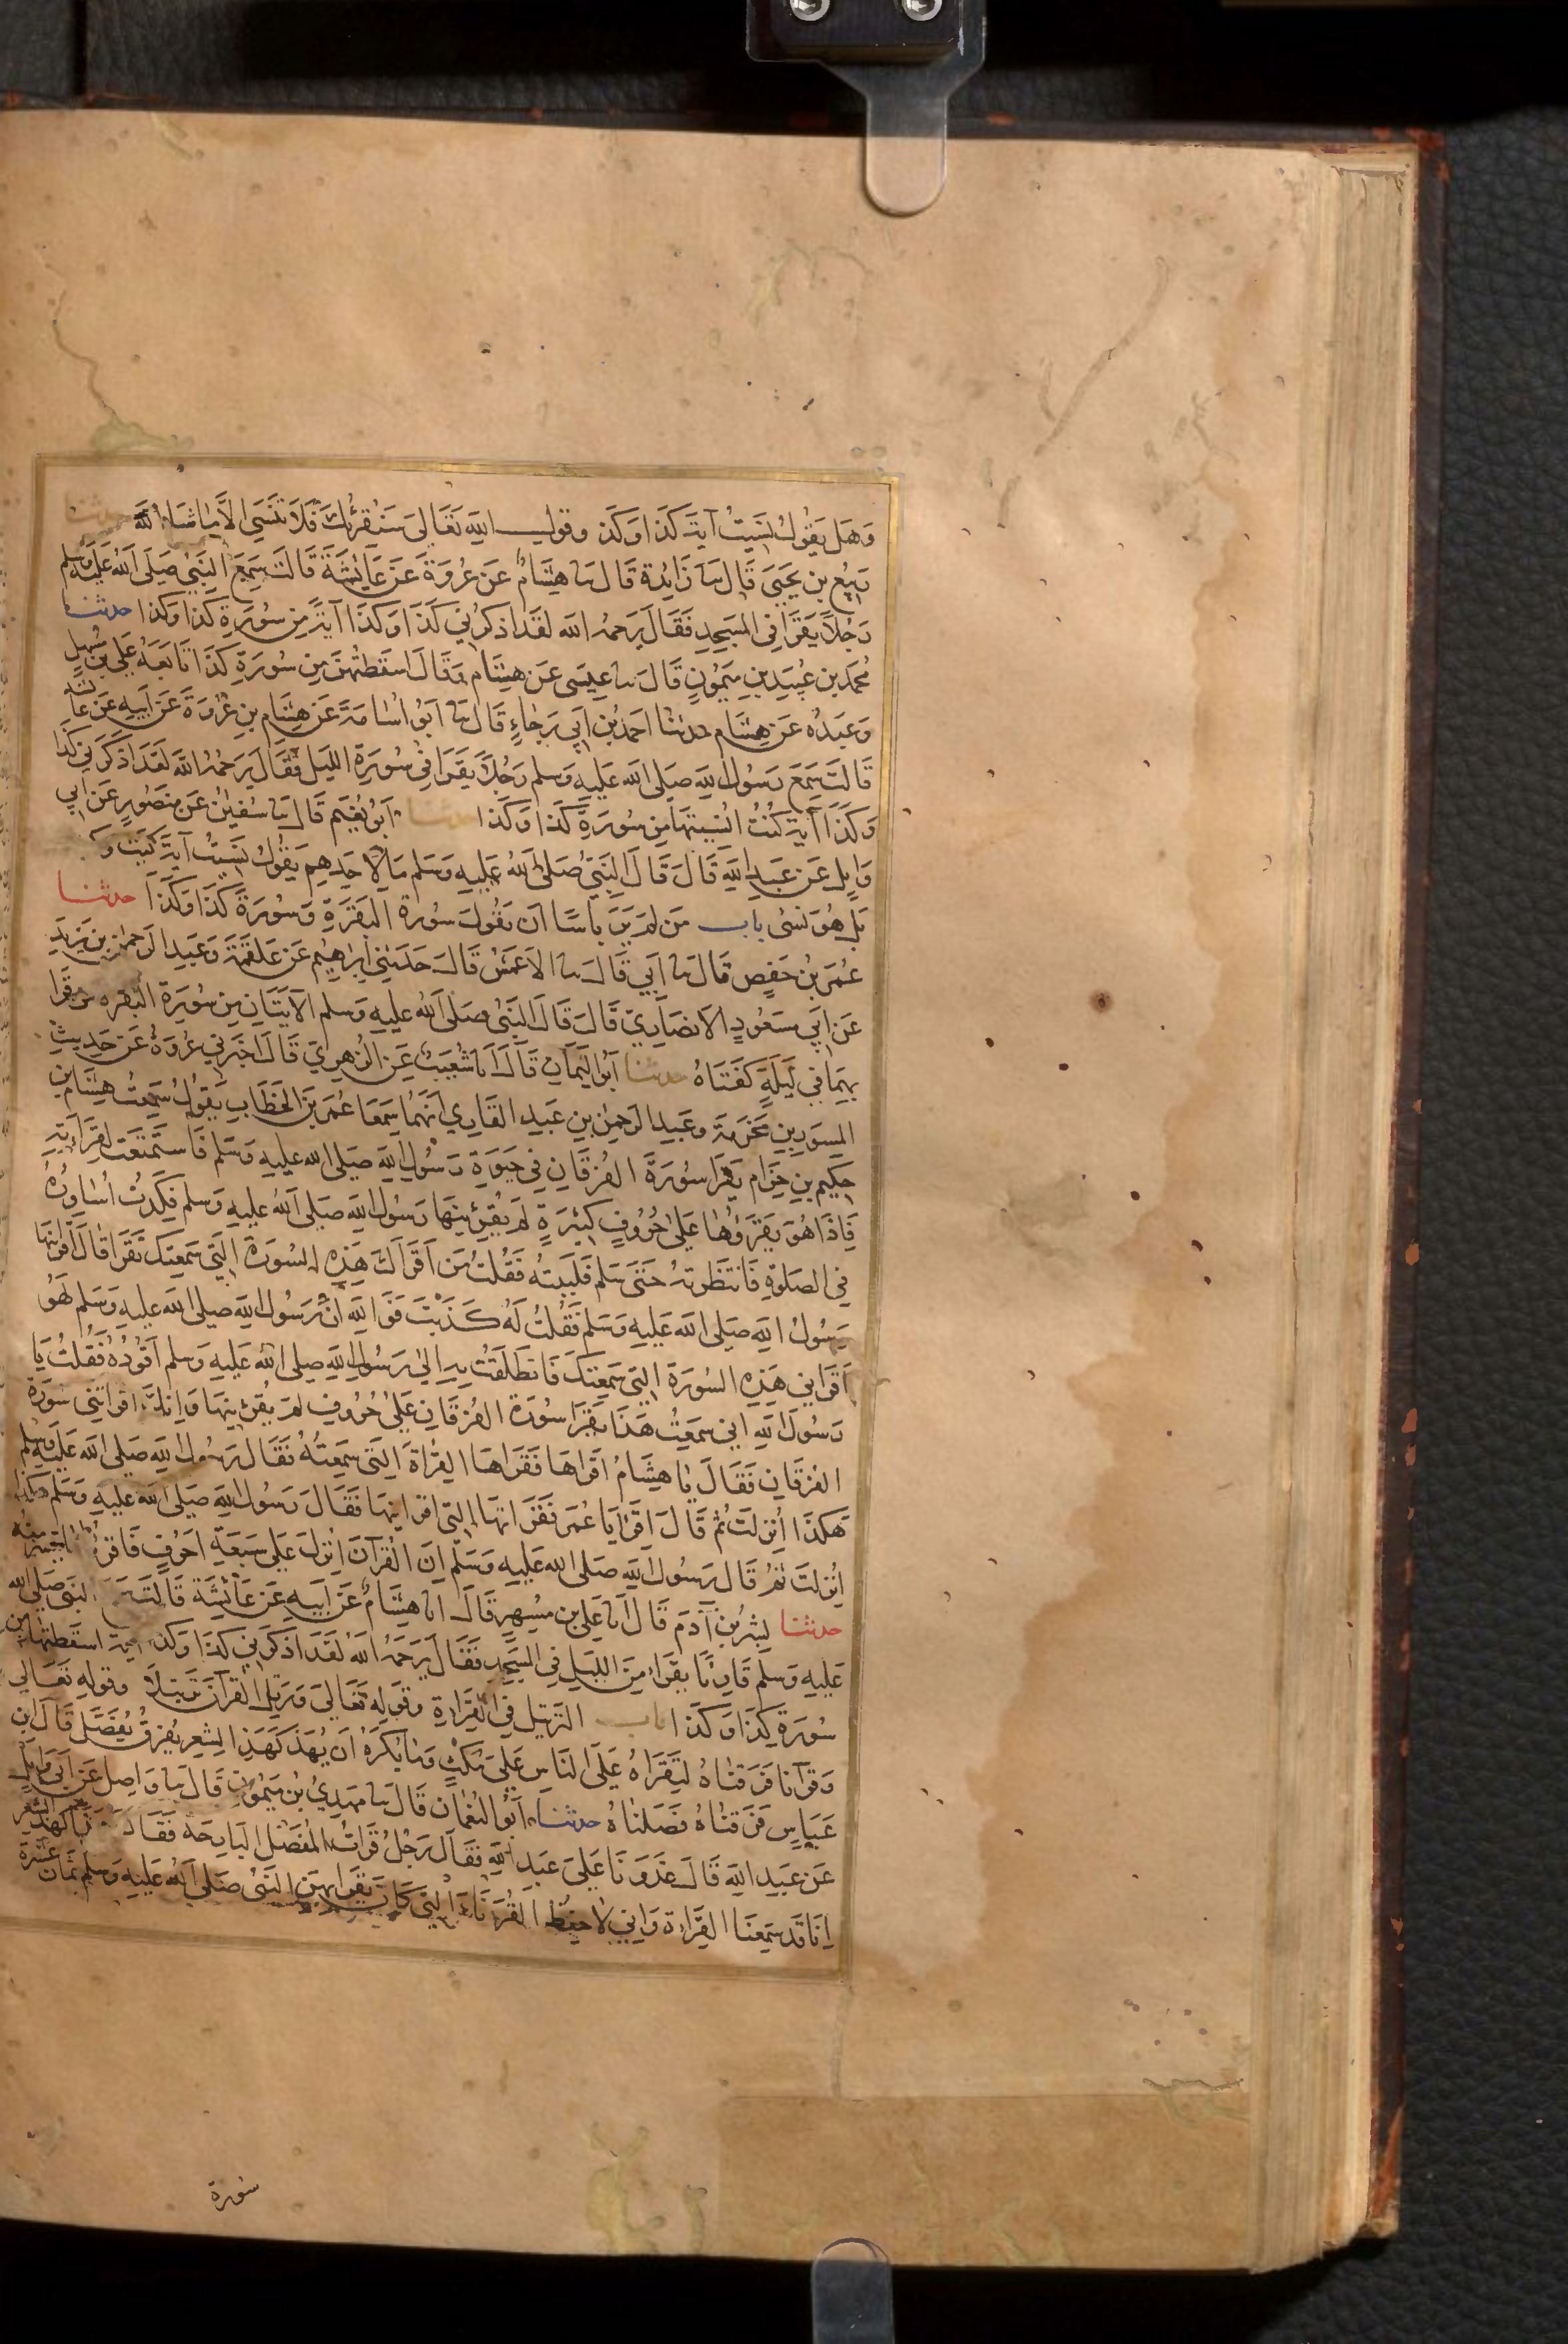 وَهَل يَقُولُ نَسِيتُ آيَةَ كَذَا وَكَذَا وقول الله تَعَالى سَنُقرِئُكَ فَلَا تَنسَى الَّا مَا شَاءَ اللّٰهُ حدثنا
رَبِيعُ بن يَحيَى قَالَ نا زَائِدة قَالَ نا هِشَامٌ عَن عُروَةَ عَن عَائِشَةَ قَالَت سَمِعَ النَّبِيُّ صَلَى اللّٰه عَلَيه وسلم
رَجُلاً يَقرَا فِى المَسجِدِ فَقَالَ يَرحَمُه الله لَقَد اَذكَرَنِي كَذَا وَكَذَا آيَةً مِن سُورَةِ كَذَا وَكَذا حدثنا
مُحَمد بن عُبَيدِ بنِ مَيمُونٍ قَالَ نا عِيسَى عَن هِشَام وَقَالَ اَسقَطتُهُنَّ مِن سُورَةِ كَذَا تَابَعَهُ عَلِي بن مُسهِرٍ
وَعَبدُه عَن هِشَام حدثنا احمَدُ بن اَبِي رَجَاءٍ قَالَ نا اَبُو اُسَامَةَ عَن هِشَامِ بنِ عُروَةَ عَن اَبِيهِ عَن عَائشة
قَالَت سَمِعَ رَسُولُ الله صَلى الله عَلَيهِ وَسَلم رَجُلاً يَقرَا فِى سُورَةِ اللَيلِ فَقَالَ يَرحَمُهُ اللّٰه لَقَد اَذكَرَنِي كَذا
وَكَذَا آيَة كُنتُ اُنسِيتُهَا مِن سُورَةِ كَذَا وَكَذَا حدثنا اَبُو نُعَيم قَالَ نا سُفيٰنُ عَن مَنصُورٍ عَن اَبِي
وَايِلٍ عَن عَبدِ اللّٰهِ قَالَ قَالَ النَّبِيُّ صَلى اللّٰهُ عَلَيهِ وَسَلم مَا لِاَحَدِهِم يَقُولُ نَسِيتُ آيَةَ كَيتَ وَكَ
بَل هُوَ نُسِّىَ باب مَن لَم يَرَ بَاسًا اَن يَقُولَ سُورَة البَقَرَةِ وَسُورَةُ كَذَا وَكَذَا حدثنا
عُمَرُ بنُ حَفصٍ قَالَ نا اَبِي قَالَ نا الاَعمَشُ قَالَ حَدَثَنِي اِبرَاهِيم عَن عَلقَمَةَ وَعَبدِ الرَحمنِ بن يَزِيدَ
عَن اَبِي مَسعُودٍ الاَنصَارِيِّ قَالَ قَالَ النَّبِيُّ صَلَى اللّٰهُ عَلَيهِ وَسَلم الآيَتَانِ مِن سُورَةِ البَقَره من قَرَا
بِهِمَا فِي لَيلَةٍ كَفَتَاهُ حدثنا اَبُو اليَمَانِ قَالَ اَنا شُعَيبٌ عَنِ الزُهرِيِّ قَالَ اَخبَرَنِي عُروَةُ عَن حَدِيثِ
المِسوَرِ بنِ مَخرَمَة وَعَبدِ الرَحمٰنِ بنِ عَبدٍ القَارِي اَنَّهُمَا سَمِعَا عُمَرَ بنَ الخَطَّابِ يَقُولُ سَمِعتُ هِشَام بن
حَكِيمِ بنِ حِزَام يَقرَا سُورَةَ الفُرقَانِ فِي حَيوةِ رَسُولِ اللّٰهِ صَلى الله عليهِ وَسَلم فَاستَمَعتُ لِقِرَاءَتِهِ
فَاِذَا هُوَ يَقرَؤُهَا عَلَى حُرُوفٍ كَثِيرَةٍ لَم يُقرِئنِيهَا رَسُولُ اللهِ صَلى اللهُ عَلَيهِ وَسَلم فَكِدتُ اُسَاوِرُهُ
فِي الصَلوٰةِ فَانتَظَرتُهُ حَتَى سَلم فَلَبَبتُه فَقُلتُ مَن اَقرَاَكَ هٰذِهِ السُورَةَ الَّتِي سَمِعتُكَ تَقرَا قَالَ اَقرَانِيهَا
رَسُولُ اللهِ صَلى الله عَلَيهِ وَسَلم فَقُلتُ لَهُ كَذَبتَ فَوَاللّٰهِ اِنَّ رَسُولَ اللهِ صلى الله عليهِ وَسَلم لَهُوَ
اَقرَانِي هَذِهِ السُورَة الَّتِي سَمِعتُكَ فَانطَلَقتُ بِهِ اِلىٰ رَسُولِ اللّٰهِ صلى اللهُ عَلَيهِ وَسلم اَقُودُهُ فَقُلتُ يَا
رَسُولَ اللهِ اِنِي سَمِعتُ هَذَا يَقرَا سُورَة الفُرقَانِ عَلىٰ حُرُوفٍ لَم يُقرِئنِيهَا وَاِنَّكَ اَقراتَنِى سُورَة
الفُرقَانِ فَقَالَ يَا هِشَامُ اقرَاهَا فَقَرَاهَا القِراءَةَ الَّتِى سَمِعتُهُ فَقَالَ رَسُولُ اللهِ صَلى الله عَلَيهِ وسلم
هَكَذَا اُنزِلَت ثُم قَالَ اِقرَا يَا عُمَر فَقَرَاتُهَا الَّتِى اَقرَانِيهَا فَقَالَ رَسُولُ اللهِ صَلى اللهُ عليهِ وَسَلم هكَذَا
اُنزِلَت ثُم قَالَ رَسُولُ اللّٰهِ صَلى الله عَلَيهِ وَسَلَّم اِنَّ القُرآنَ اُنزِلَ عَلى سَبعَةِ اَحرُفٍ فَاقرَؤُا مَا تَيَسَّرَ مِنهُ
حدثنا بِشرُ بنُ آدَمَ قَالَ اَنا عَلِيُّ بن مُسهِرٍ قَالَ اَنا هِشَامٌ عَن اَبِيهِ عَن عَائِشَةَ قَالَت سَمِعَ النبي صلى الله
عَلَيهِ وَسَلَّم قَارِئًا يَقرَاُ مِنَ اللَيلِ فِي المَسجِدِ فَقَالَ يَرحَمُهُ اللّٰهُ لَقَد اَذكَرَنِي كَذَا وَكَذا آيَة اسقَطتُهَا مِن
سُورَةِ كَذَا وَكَذَا باب التَرتِيل فِي القِرَاءةِ وقَولِهِ تَعَالى وَرَتِّلِ القُرآنَ تَرتِيلاً وقوله تَعَالى
وَقُرآنًا فَرَقنَاهُ لِتَقرَاَهُ عَلَى النَاسِ عَلىَ مُكثٍ وَمَا يُكرَهُ اَن يُهَذَّ كَهَذِّ الشِعرِ يُفرَقُ يُفَصَّلُ قَالَ ابن
عَبَاسٍ فَرَقنَاهُ فَصَلنَاهُ حدثنا اَبُو النُعمَانِ قَالَ نا مَهدِيُّ بنُ مَيمُونٍ قَالَ نا وَاصِل عَن اَبِي وَايِلٍ
عَن عَبدِ اللهِ قَالَ غَدَونَا عَلىَ عَبدِ اللّٰهِ فَقَالَ رَجُلٌ قَرَاتُ المُفَصَّلَ البَارِحَةَ فَقَالَ هَذًّا كَهَذِّ الشعر
اِنَّا قَد سَمِعنَا القِرَاءة وَاِنِي لَاَحفَظُ القُرَنَاءَ الَّتِي كَانَ يَقرَا بِهِنَّ النَّبِيُّ صَلى اللّٰهُ عَلَيهِ وَسَلم ثَمَانَ عَشرَةَ
سورة